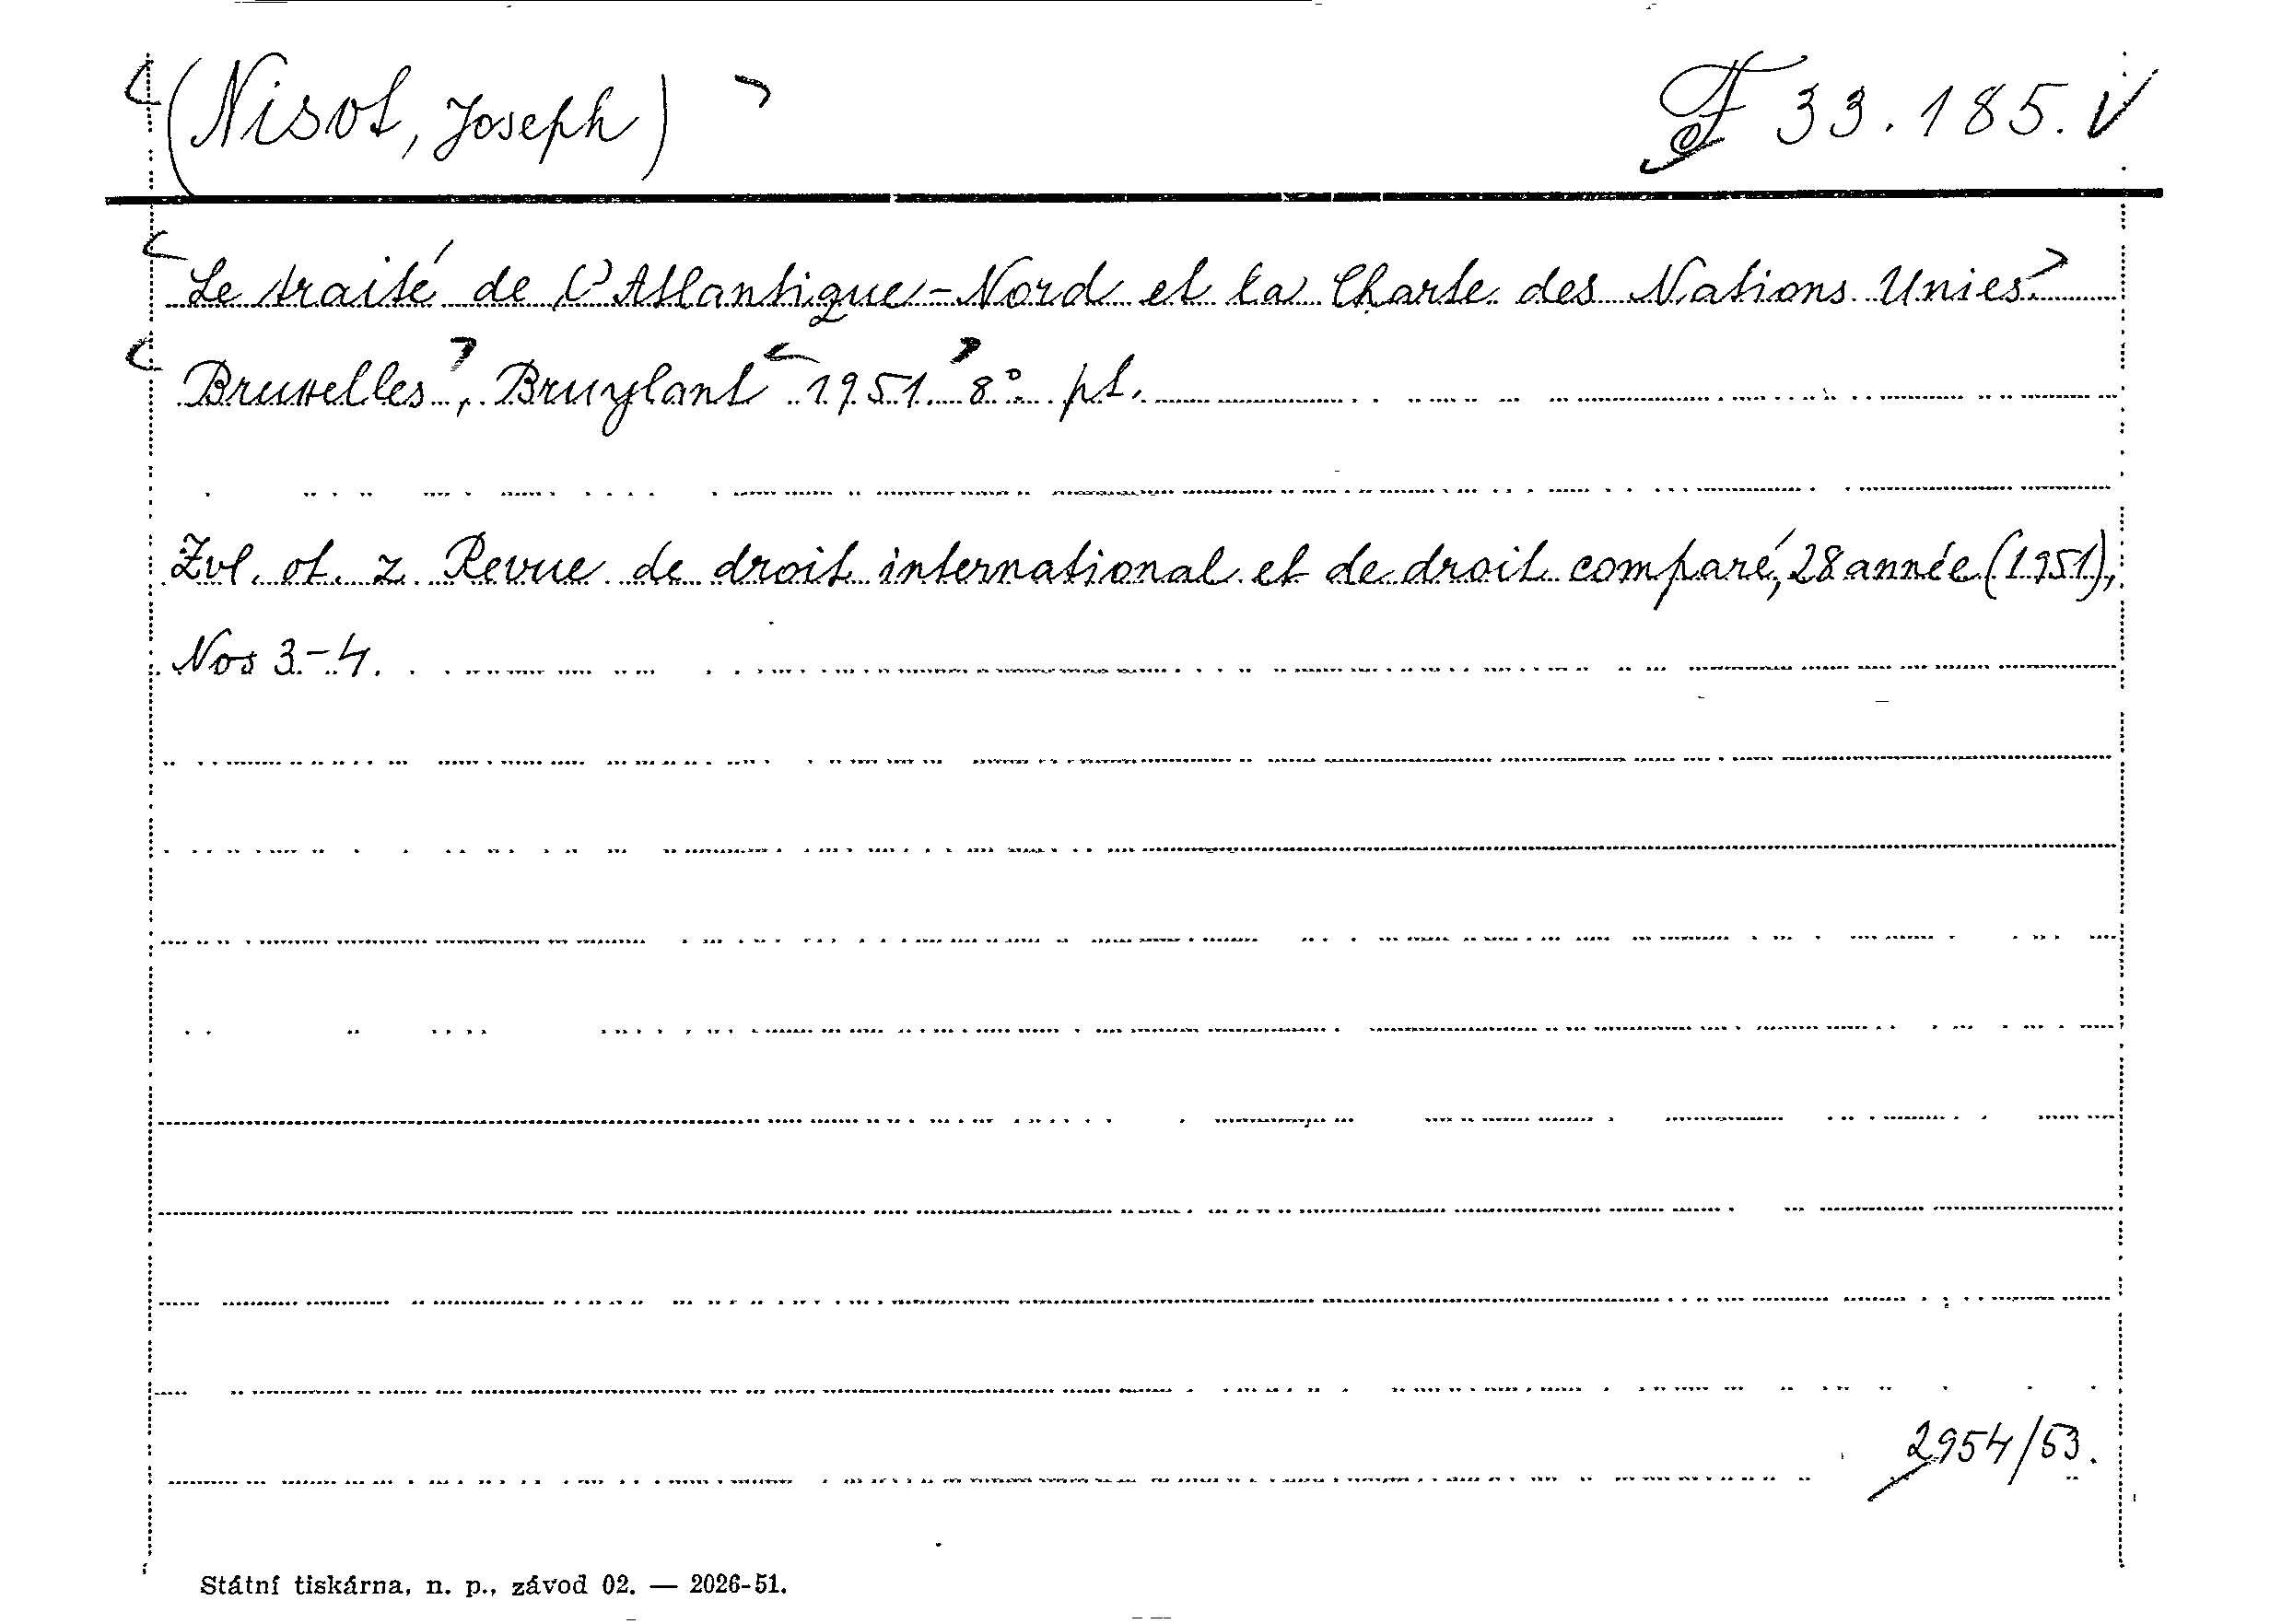 (Nisot, Joseph) F 33.185.
Le traité de l'Atlantique-Nord et la Charte des Nations Unies.
Bruxelles, Bruylant 1951. 8° pt.
Zvl. ot. z Revue de droit international et de droit comparé, 28 année (1951),
Nos 3-4.
2954/53.
Státní tiskárna, n. p., závod 02. — 2026-51.